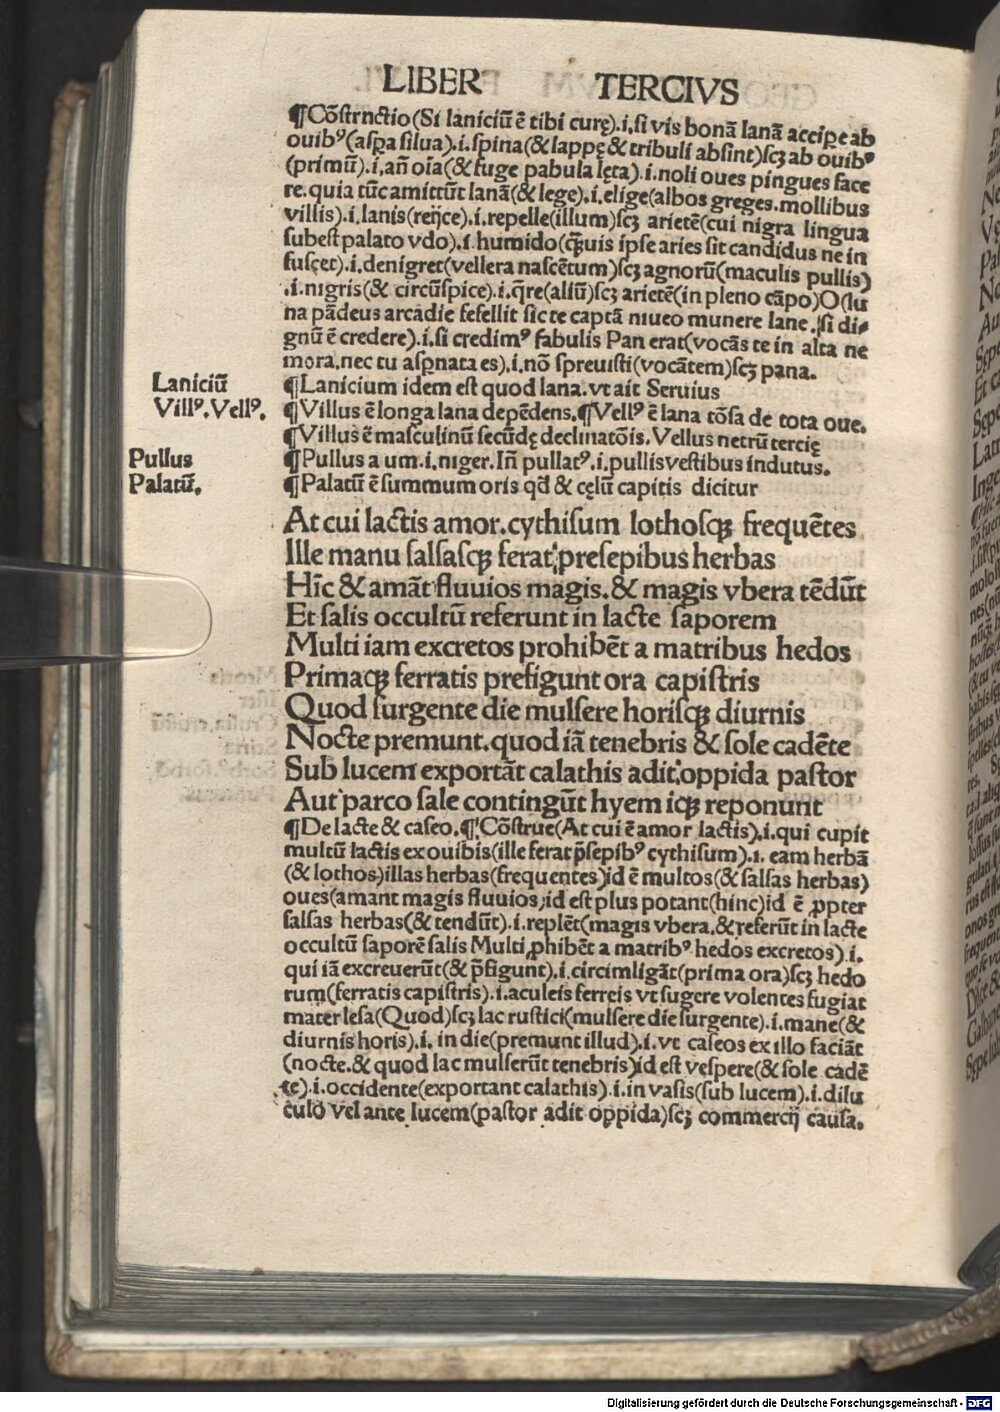 LIBER TERCIVS
¶Cõstrnctio(Si laniciũ ē tibi curę).i,si vis bonā lanā accipe ab
ouibꝰ(aspa silua).i.spina(& lappę & tribuli absint)scꝫ ab ouibꝰ
(primũ).i,añ oĩa(& fuge pabula lęta).i.noli oues pingues face
re.quia tũc amittũt lanā(& lege).i.elige(albos greges.mollibus
villis).i.lanis(reijce).i.repelle(illum)scꝫ arietē(cui nigra lingua
subest palato vdo).i humido(q̃uis ipse aries sit candidus ne in
fuscet).i.denigret(vellera nascētum)scꝫ agnorũ(maculis pullis)
.i.nigris(& circũspice).i.q̃re(aliũ)scꝫ arietē(in pleno cāpo)O(lu
na pā deus arcadie fefellit sic te captā niueo munere lane .si di⸗
gnũ ē credere).i.si credimꝰ fabulis Pan erat(vocās te in alta ne
mora.nec tu aspnata es).i.nō spreuisti(vocātem)scꝫ pana.
Laniciũ ¶Lanicium idem est quod lana.vt ait Seruius
Villꝰ.Vellꝰ. ¶Villus ē longa lana depēdens.¶Vellꝰ ē lana tōsa de tota oue.
¶Villus ē masculinũ secũdę declinatōis.Vellus netrũ tercię
Pullus ¶Pullus a um.i.niger.Iñ pullatꝰ.i.pullis vestibus indutus.
Palatũ. ¶Palatũ ē summum oris qd̃ & cęlũ capitis dicitur
At cui lactis amor.cythisum lothosqꝫ frequētes
Ille manu salsasqꝫ ferat presepibus herbas
Hīc & amāt fluuios magis.& magis vbera tēdũt
Et salis occultũ referunt in lacte saporem
Multi iam excretos prohibēt a matribus hedos
Primaqꝫ ferratis prefigunt ora capistris
Quod surgente die mulsere horisqꝫ diurnis
Nocte premunt.quod iā tenebris & sole cadēte
Sub lucem exportāt calathis adit oppida pastor
Aut parco sale contingũt hyem iqꝫ reponunt
¶De lacte & caseo.¶Cōstrue(At cui ē amor lactis).i.qui cupit
multũ lactis ex ouibis(ille ferat p̃sepibꝰ cythisum).i. eam herbā
(& lothos)illas herbas(frequentes)id ē multos(& salsas herbas)
oues(amant magis fluuios)id est plus potant(hinc)id ē ꝓpter
salsas herbas(& tendũt).i.replēt(magis vbera.& referũt in lacte
occultũ saporē salis Multi ꝓhibēt a matribꝰ hedos excretos).i.
qui iā excreuerũt(& p̃figunt).i.circimligāt(prima ora)scꝫ hedo
rum(ferratis capistris).i.aculeis ferreis vt sugere volentes fugiat
mater lesa(Quod)scꝫ lac rustici(mulsere die surgente).i.mane(&
diurnis horis).i. in die(premunt illud).i.vt caseos ex illo faciāt
(nocte.& quod lac mulserũt tenebris)id est vespere(& sole cadē
te).i.occidente(exportant calathis).i.in vasis(sub lucem).i.dilu
culo vel ante lucem(pastor adit oppida)scꝫ commercij causa.
Digitalisierung gefördert durch die Deutsche Forschungsgemeinschaft - DFG